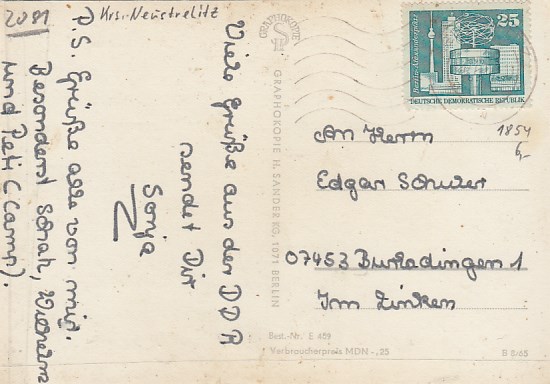 2081
Krs. Neustrelitz
Viele Grüße aus der DDR
sendet Dir
Sonja
P.S. Grüße alle von mir.
Besonderst Schah, Wilhelm
und Peti (Camp).
GRAPHOKOPIE
GRAPHOKOPIE H. SANDER KG, 1071 BERLIN
Berlin-Alexanderplatz
25
DEUTSCHE DEMOKRATISCHE REPUBLIK
1854
6,-
An Herrn
Edgar Schuler
07453 Burladingen 1
Im Zinken
Best.-Nr. E 459
Verbraucherpreis MDN -,25
B 5/65